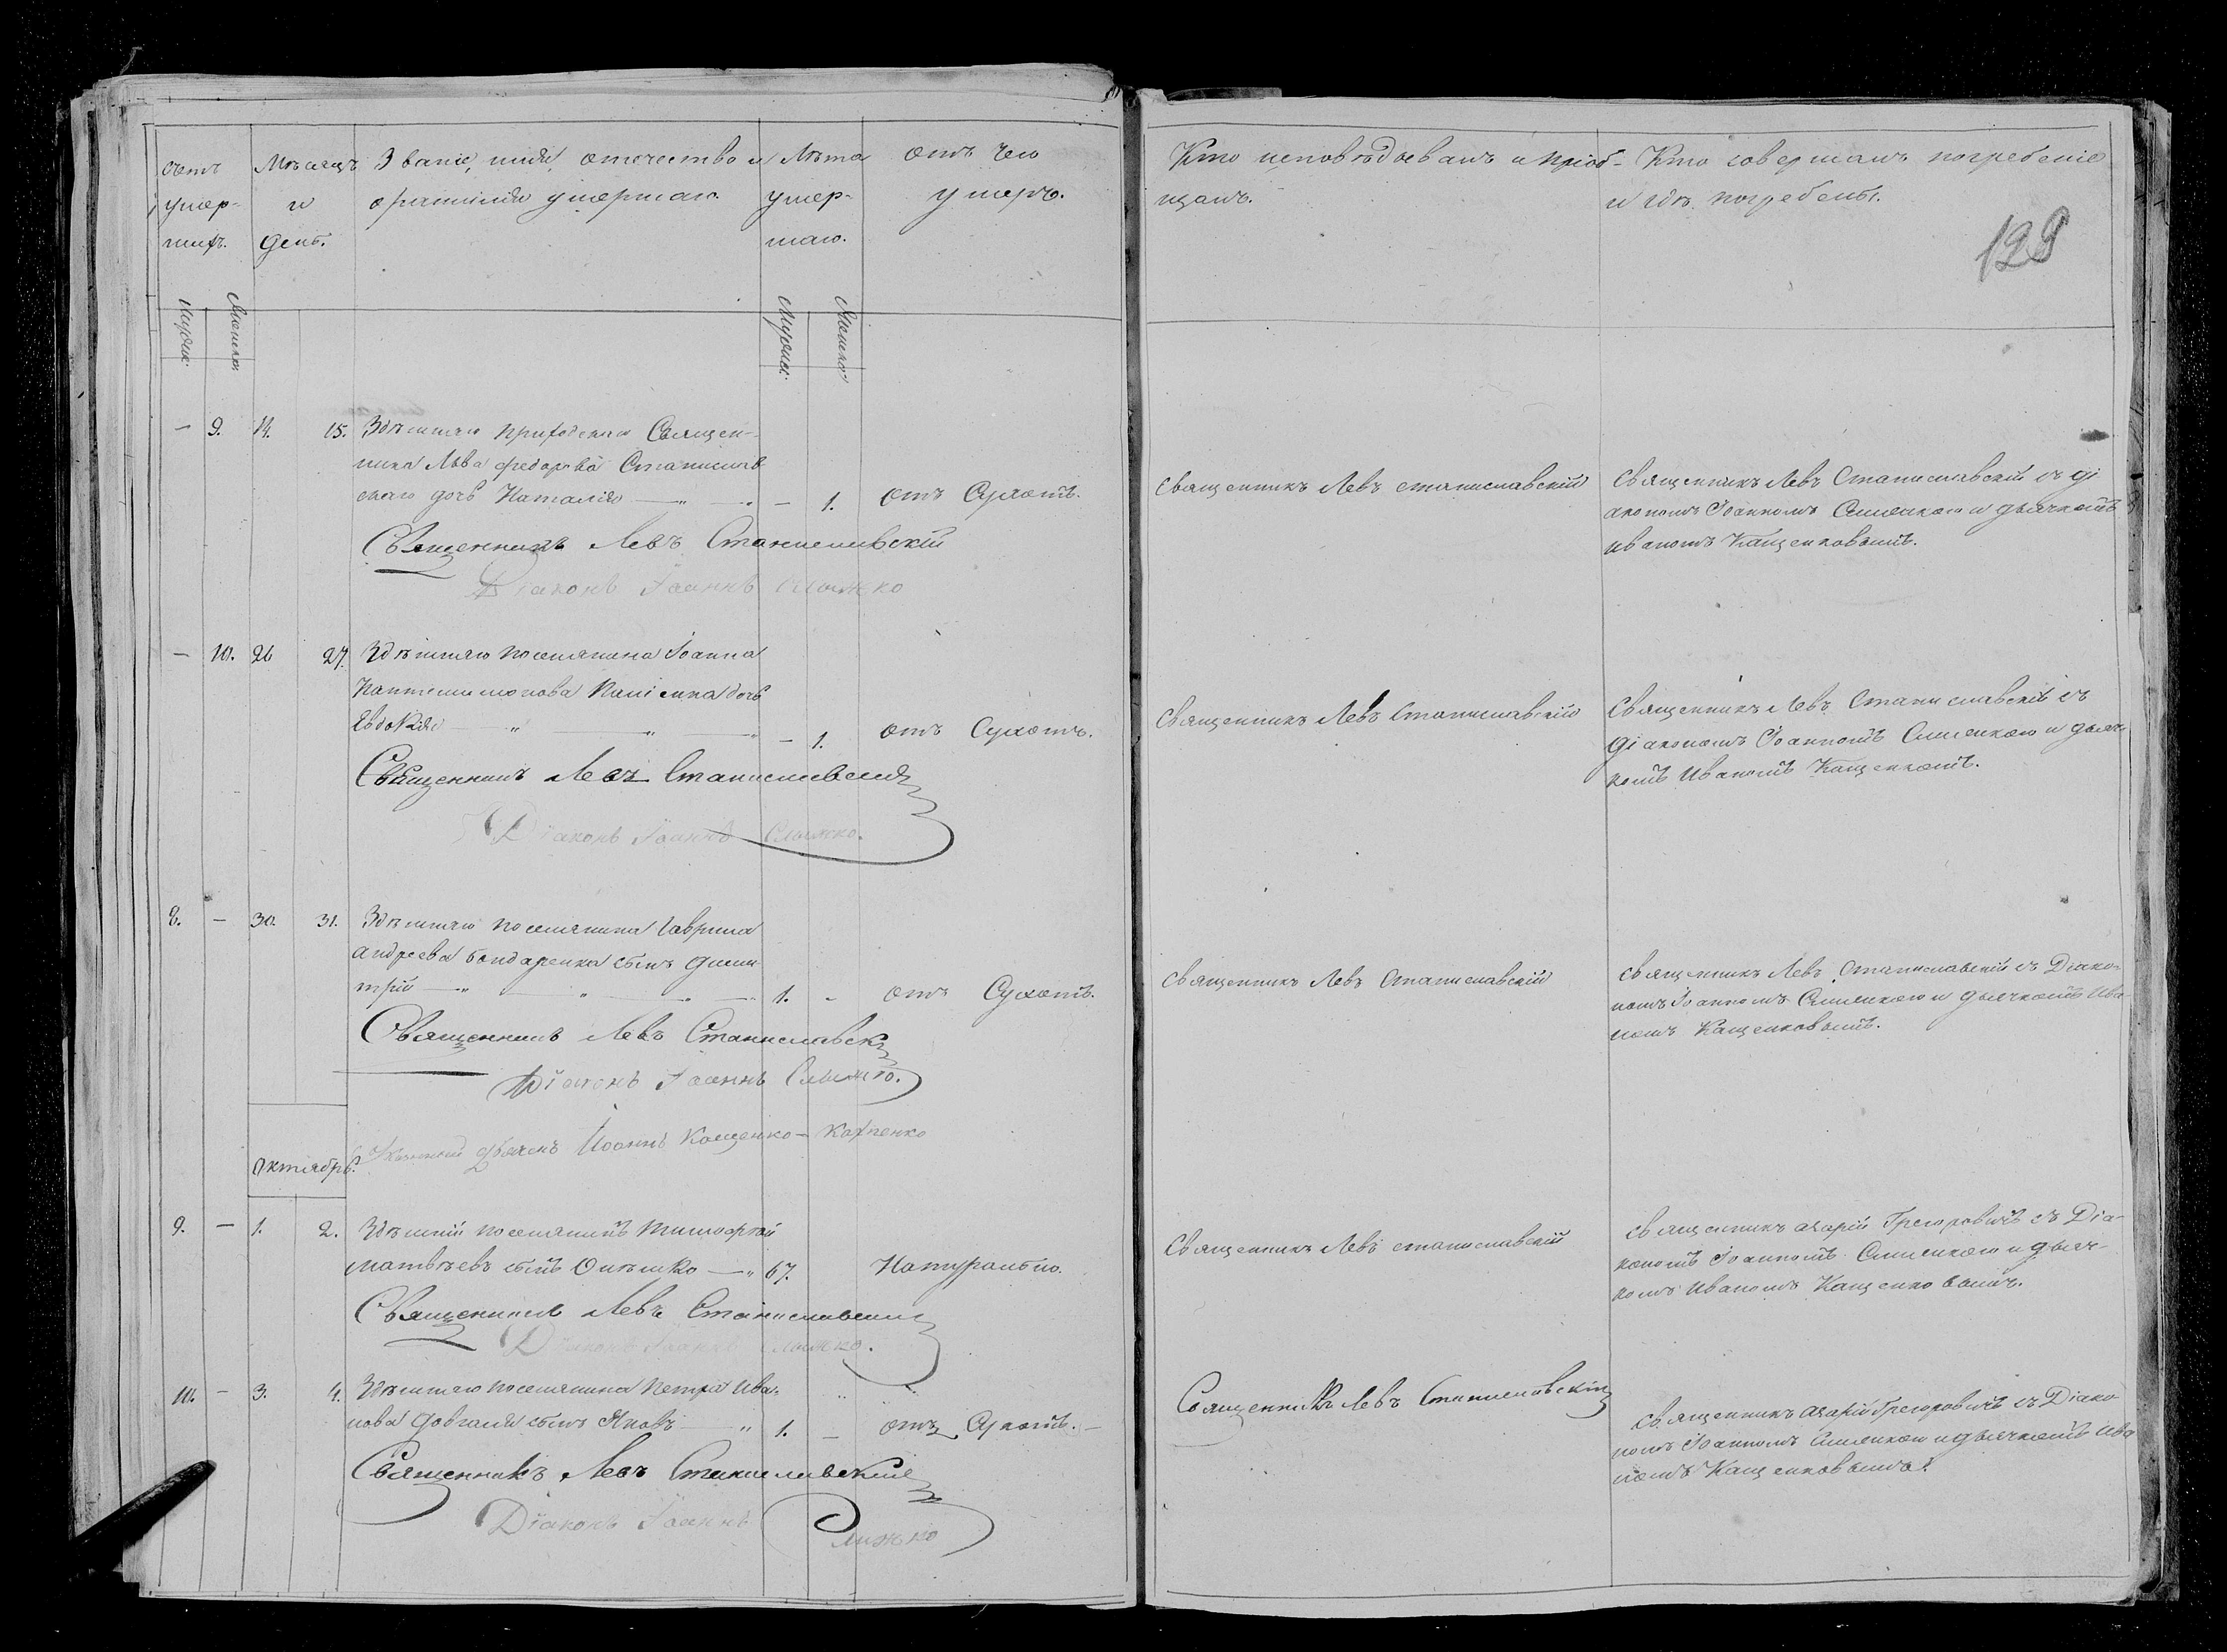 Счетъ
умер-
шихъ.
Мѣсяцъ
и
день.
Званіе, имя, отечество и
фамилія умершаго.
Лѣта
умер-
шаго.
отъ чего
умеръ.
Кто исповѣдовалъ и пріоб-
щалъ.
Кто совершалъ погребеніе
и гдѣ погребены.
129
Мужск:
Женска:
Мужеск:
Женска:
— 9. 14. 15. Здѣшняго приходскаго Священ-
ника Льва Федорова Станислав
скаго дочь Наталія — „ — „ — 1. отъ Сухотъ.
Священникъ Левъ Станиславскій
Діаконъ Іоаннъ Слижко
Священникъ Левъ Станиславскій
Священникъ Левъ Станиславскій съ ді
акономъ Іоанномъ Слижкою и дьячкомъ
Иваномъ Кащенковымъ.
— 10. 26 27. Здѣшняго поселянина Іоанна
дочь
Евдокія — „ — „ — „ — 1. отъ Сухотъ.
Священникъ Левъ Станиславскій
Діаконъ Іоаннъ Слижко.
Священникъ Левъ Станиславскій
Священникъ Левъ Станиславскій съ
діакономъ Іоанномъ Слижкою и дьяч-
комъ Иваномъ Кащенкомъ.
8. — 30. 31. Здѣшняго поселянина Гаврила
Андреева Бондаренка сынъ Дими
трій — „ — „ — „ — 1. - отъ Сухотъ.
Священникъ Левъ Станиславскій
Діаконъ Іоаннъ Слижко.
Дьячекъ Иоаннъ Кащенко-Карпенко
Священникъ Левъ Станиславскій
Священникъ Левъ Станиславскій съ Діако-
номъ Іоанномъ Слижкою и дьячкомъ Ива-
номъ Кащенковымъ.
Октябрь.
9. — 1. 2. Здѣшній поселянинъ Тимофтей
Матвѣевъ сынъ — „ 67. Натурально.
Священникъ Левъ Станиславскій
Діаконъ Іоаннъ Слижко.
Священникъ Левъ Станиславскій
Священникъ Азарій Грегоровичъ съ Діа-
кономъ Іоанномъ Слижкою и дьяч-
комъ Иваномъ Кащенковымъ.
10. — 3. 4. Здѣшняго поселянина Петра Ива-
нова Довгаля сынъ Яковъ — „ 1. — отъ Сухотъ. —
Священникъ Левъ Станиславскій
Діаконъ Іоаннъ Слижко
Священникъ Левъ Станиславскій
Священникъ Азарій Грегоровичъ съ Діако
номъ Іоанномъ Слижкою и дьячкомъ Ива
номъ Кащенковымъ.